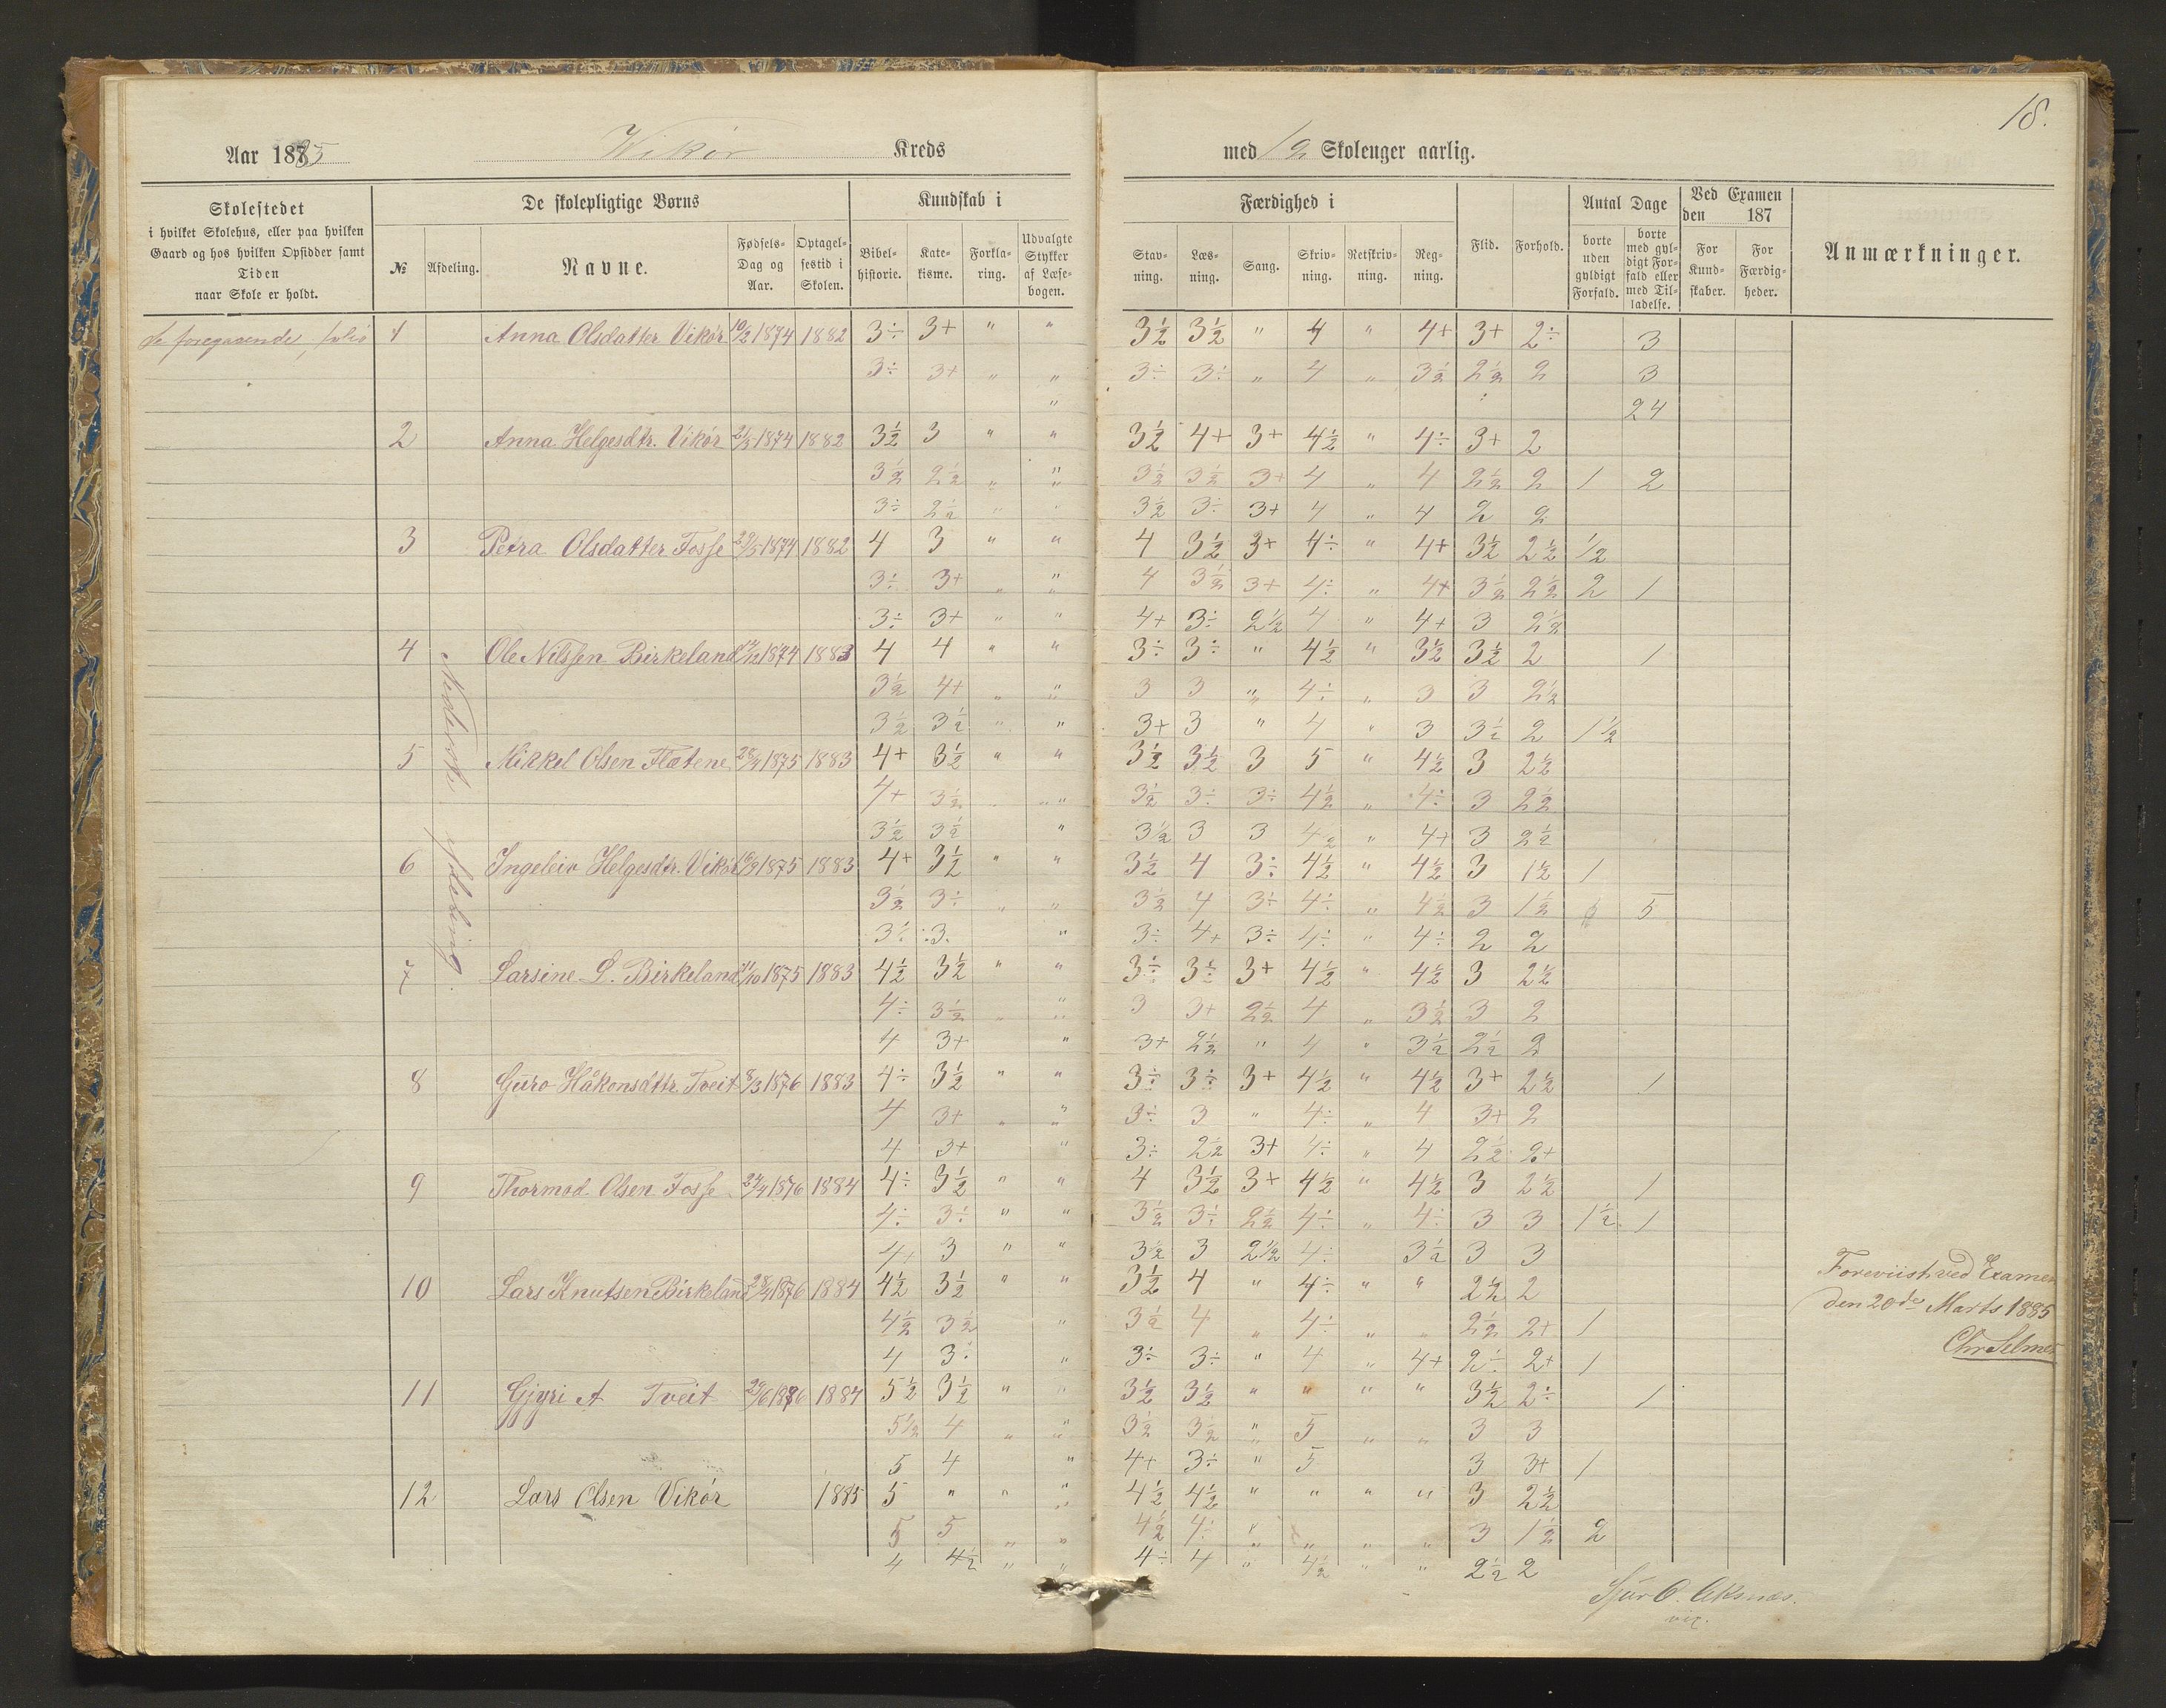 18.
Aar 1885 Wikør Kreds med 12 Skoleuger aarlig.
Skolestedet i hvilket Skolehus, eller paa hvilken Gaard og hos hvilken Opsidder samt Tiden naar Skole er holdt.
De skolepligtige Børns
№ Afdeling. Navne. Fødsels-Dag og Aar. Optagel-sestid i Skolen.
Kundskab i
Bibel-historie. Kate-kisme. Forkla-ring. Udvalgte Stykker af Læse-bogen.
Færdighed i
Stav-ning. Læs-ning. Sang. Skriv-ning. Retskriv-ning. Reg-ning.
Flid. Forhold.
Antal Dage
borte uden gyldigt Forfald. borte med gyl-digt For-fald eller med Til-ladelse.
Ved Examen den 187
For Kund-skaber. For Færdig-heder.
Anmærkninger.
se foregaaende folio
Nederste Afdeling.
1 Anna Olsdatter Vikør 10/2 1874 1882 3÷ 3+ " " 3½ 3½ " 4 " 4+ 3+ 2÷ 3
3÷ 3+ " " 3÷ 3÷ " 4 " 3½ 2½ 2 3
" 24
2 Anna Helgesdtr. Vikør 21/3 1874 1882 3½ 3 " " 3½ 4+ 3+ 4½ " 4÷ 3+ 2
3½ 2½ " " 3½ 3½ 3+ 4 " 4 2½ 2 1 2
3÷ 2½ " " 3½ 3÷ 3+ 4 " 4 2 2
3 Petra Olsdatter Fosse 29/5 1874 1882 4 3 " " 4 3½ 3+ 4÷ " 4+ 3½ 2½ ½
3÷ 3+ " " 4 3½ 3+ 4÷ " 4+ 3½ 2½ 2 1
3÷ 3+ " " 4+ 3÷ 2½ 4 " 4+ 3 2½
4 Ole Nilssen Birkeland 1874 1883 4 4 " " 3÷ 3÷ " 4½ " 3½ 3½ 2 1
3½ 4+ " " 3 3 " 4÷ " 3 3 2½
3½ 3½ " " 3+ 3 " 4 " 3 3½ 2 1½
5 Mikkel Olsen Flatene 28/4 1875 1883 4+ 3½ " " 3½ 3½ 3 5 " 4½ 3 2½
4+ 3½ " " 3½ 3÷ 3÷ 4½ " 4÷ 3 2½
3½ 3½ " 3½ 3 3 4½ " 4+ 3 2½
6 Ingeleiv Helgesdtr. Vikør 16/9 1875 1883 4+ 3½ " " 3½ 4 3÷ 4½ " 4½ 3 1½ 1
3½ 3÷ " " 3½ 4 3÷ 4÷ " 4½ 3 1½ 5
3½ 3 " 3÷ 4+ 3÷ 4÷ " 4÷ 2 2
7 Larsine L. Birkeland 11/10 1875 1883 4½ 3½ " " 3÷ 3÷ 3+ 4½ " 4½ 3 2½
4÷ 3½ " " 3 3+ 2½ 4 " 3½ 3 2
4 3+ " 3+ 2½ " 4 " 3½ 2½ 2
8 Guro Håkonsdttr. Tveit 8/3 1876 1883 4÷ 3½ " " 3÷ 3÷ 3+ 4½ " 4½ 3+ 2½ 1
4 3+ " " 3÷ 3 " 4÷ " 4 3+ 2
4 3+ " 3÷ 2½ 3+ 4÷ " 4 2½ 2+
9 Thormod Olsen Fosse 24/4 1876 1884 4÷ 3½ " " 4 3½ 3+ 4½ " 4½ 3 2½ 1
4÷ 3÷ " " 3½ 3÷ 2½ 4÷ " 4÷ 3 3 1½ 1
4+ 3 " " 3½ 3 2½ 4÷ 3½ 3 3
10 Lars Knutsen Birkeland 28/4 1876 1884 4½ 3½ " " 3½ 4 " 4÷ " " 2½ 2
4½ 3½ " 3½ 4 " 4÷ " " 2½ 2+ 1
4 3÷ " 3÷ 3÷ " 4 " 4+ 2÷ 2+ 1
11 Gjyri A Tveit 29/6 1876 1884 5½ 3½ " " 3½ 3½ " " " " 3½ 2÷ 1
5½ 4 " " 3½ 3½ " 5 " " 3 3
5 4 " 4+ 3÷ " 5 3 3+ 1
12 Lars Olsen Vikør 1885 5 " " " 4½ 4½ " " " " 3 2½
5 5 " " 4½ 4÷ " " " " 3 1½ 2
4 4½ " " 4÷ 4 " 4½ " " 2½ 2
Foreviist ved Examen
den 20de Marts 1885
Chr Selmer
Sjur O. Aksnæs.